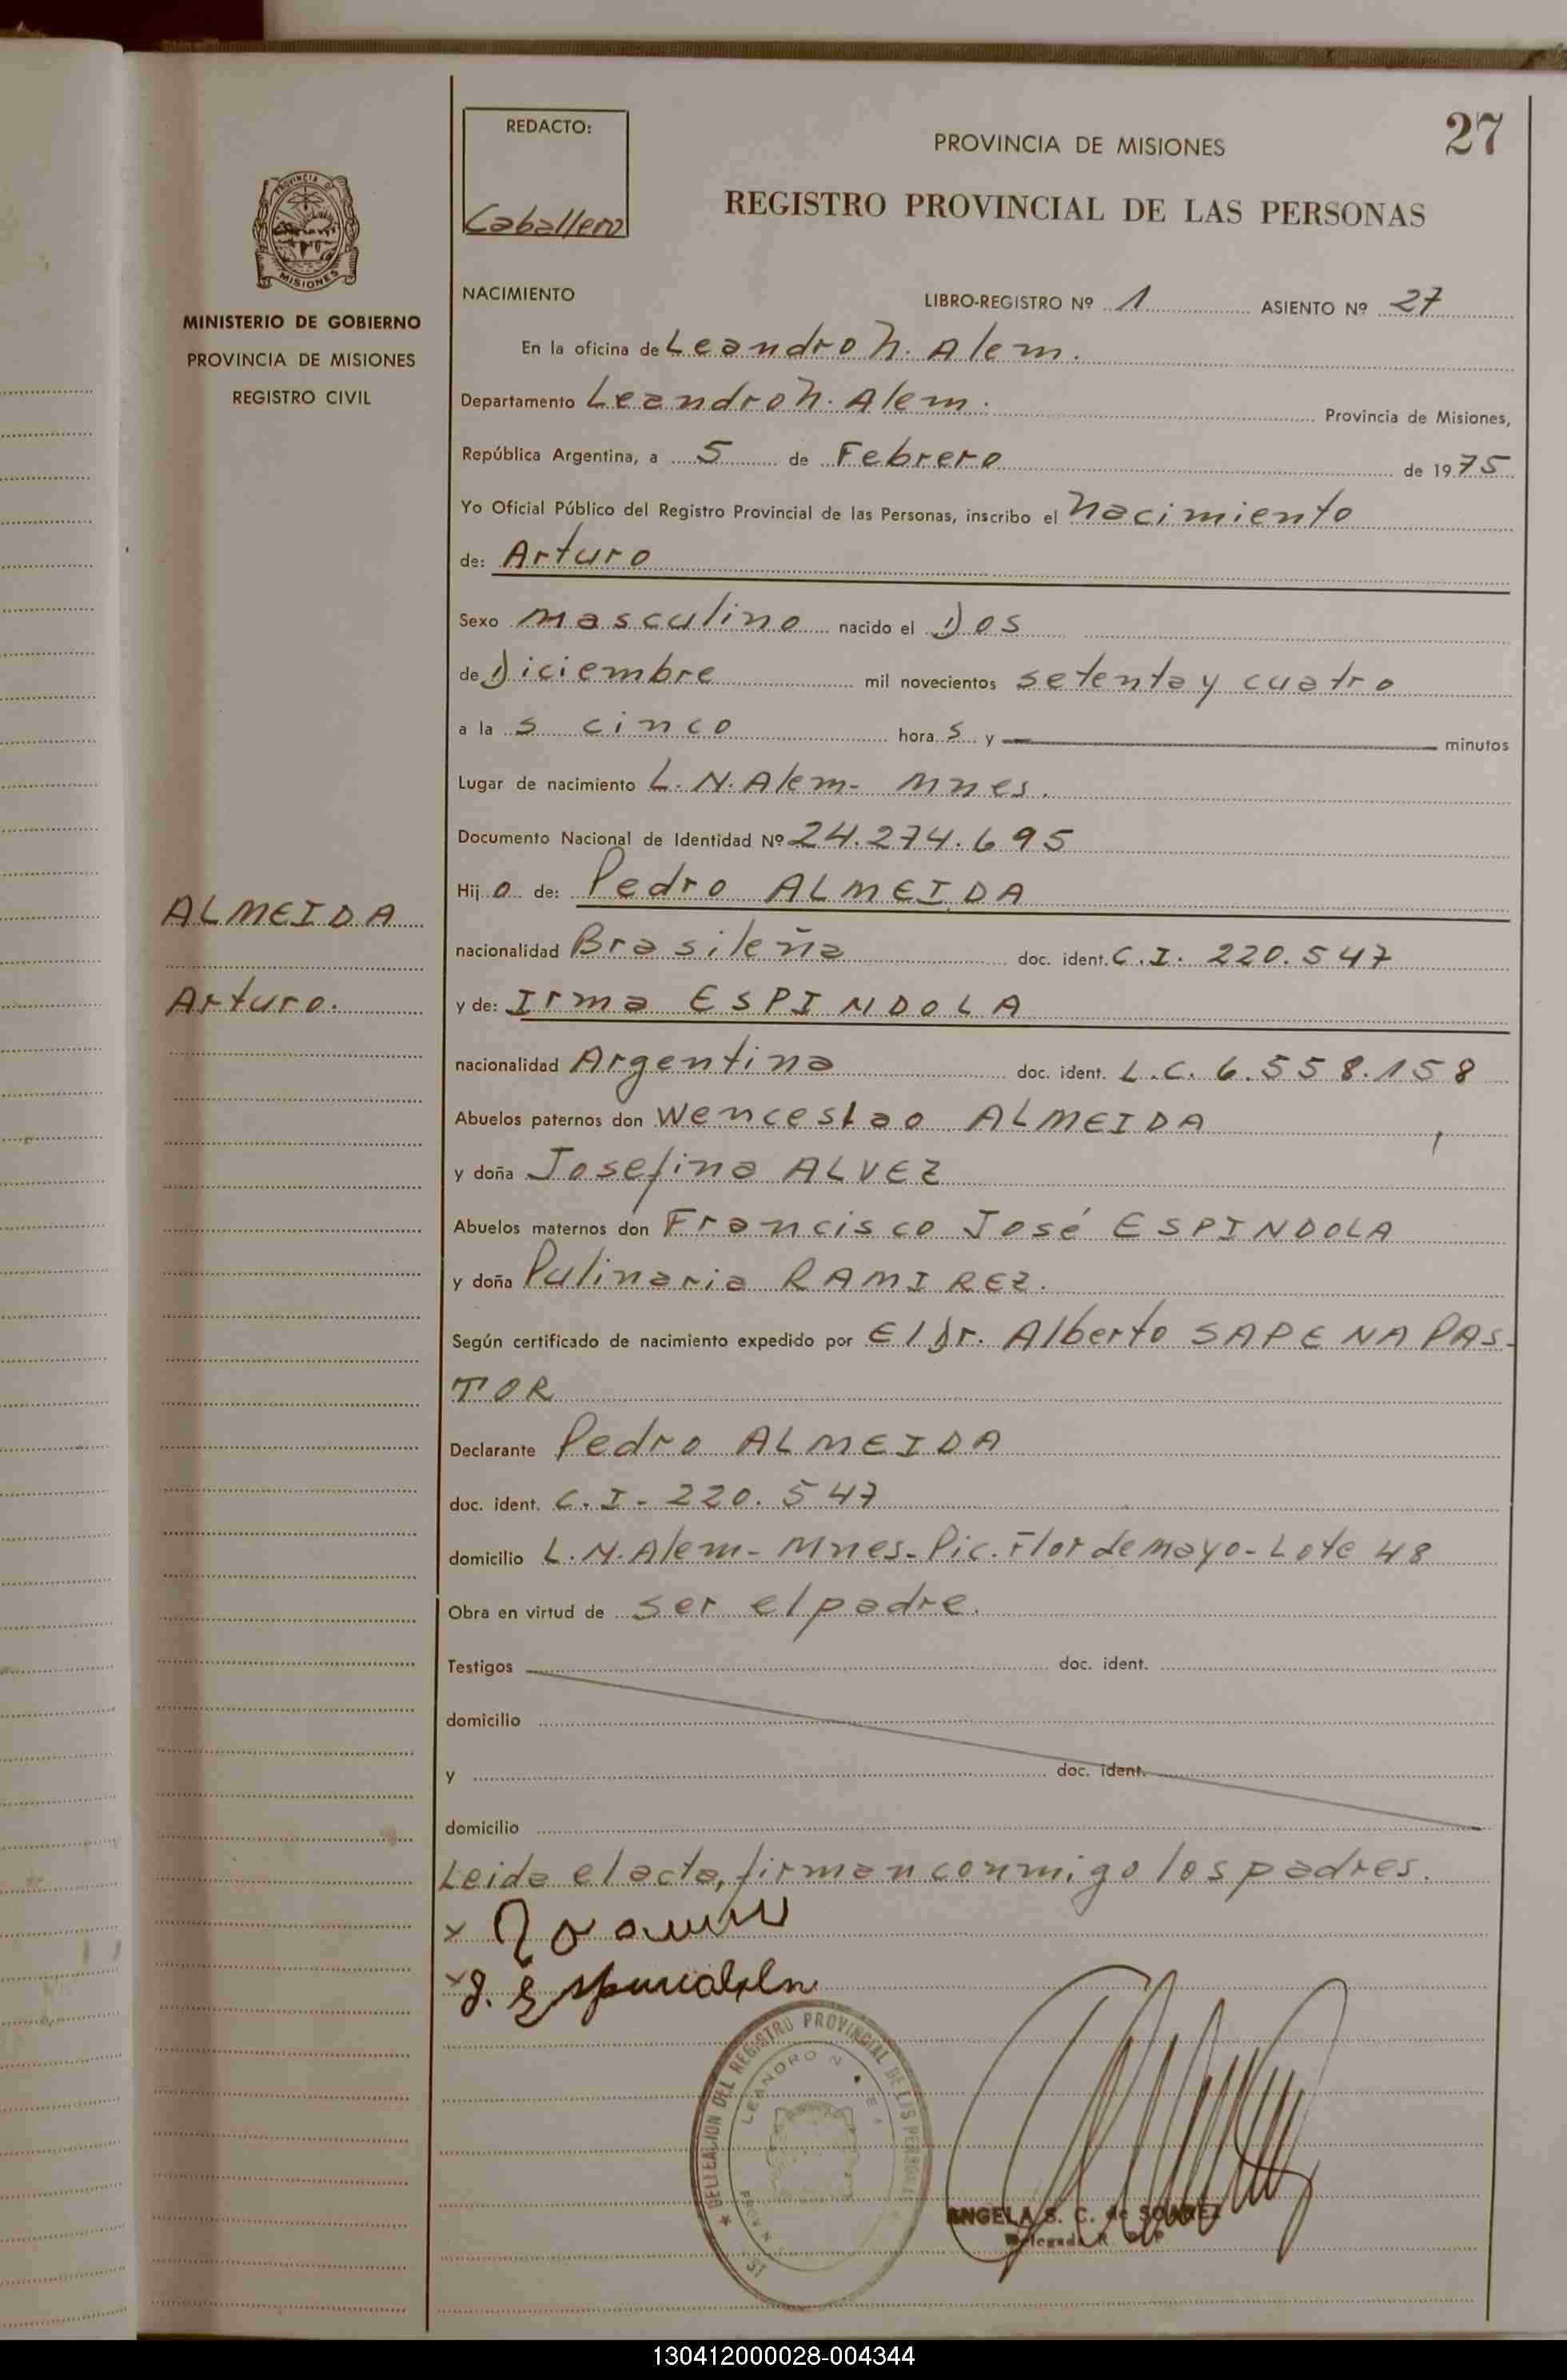 REDACTO:
Caballero
PROVINCIA DE MISIONES
27
REGISTRO PROVINCIAL DE LAS PERSONAS
PROVINCIA DE
MISIONES
MINISTERIO DE GOBIERNO
PROVINCIA DE MISIONES
REGISTRO CIVIL
NACIMIENTO
LIBRO-REGISTRO Nº 1 ASIENTO Nº 27
En la oficina de Leandro N. Alem.
Departamento Leandro N. Alem. Provincia de Misiones,
República Argentina, a 5 de Febrero de 1975
Yo Oficial Público del Registro Provincial de las Personas, inscribo el Nacimiento
de: Arturo
Sexo masculino nacido el Dos
de Diciembre mil novecientos setenta y cuatro
a la s cinco hora s y minutos
Lugar de nacimiento L. N. Alem- Mnes.
Documento Nacional de Identidad Nº 24.274.695
Hij o de: Pedro ALMEIDA
ALMEIDA
nacionalidad Brasileña doc. ident. C.I. 220.547
Arturo.
y de: Irma ESPINDOLA
nacionalidad Argentina doc. ident. L.C. 6.558.158
Abuelos paternos don Wenceslao ALMEIDA
y doña Josefina ALVEZ
Abuelos maternos don Francisco José ESPINDOLA
y doña Pulinaria RAMIREZ.
Según certificado de nacimiento expedido por El Dr. Alberto SAPENA PAS-
TOR
Declarante Pedro ALMEIDA
doc. ident. C.I- 220.547
domicilio L.N.Alem- Mnes- Pic. Flor de mayo- Lote 48
Obra en virtud de ser el padre.
Testigos doc. ident.
domicilio
y doc. ident.
domicilio
Leida el acta, firman conmigo los padres.
x
x
DELEGACION DEL REGISTRO PROVINCIAL DE LAS PERSONAS
LEANDRO N
ANGELA S. C. de SOAREZ
Delegada R. P. P.
130412000028-004344